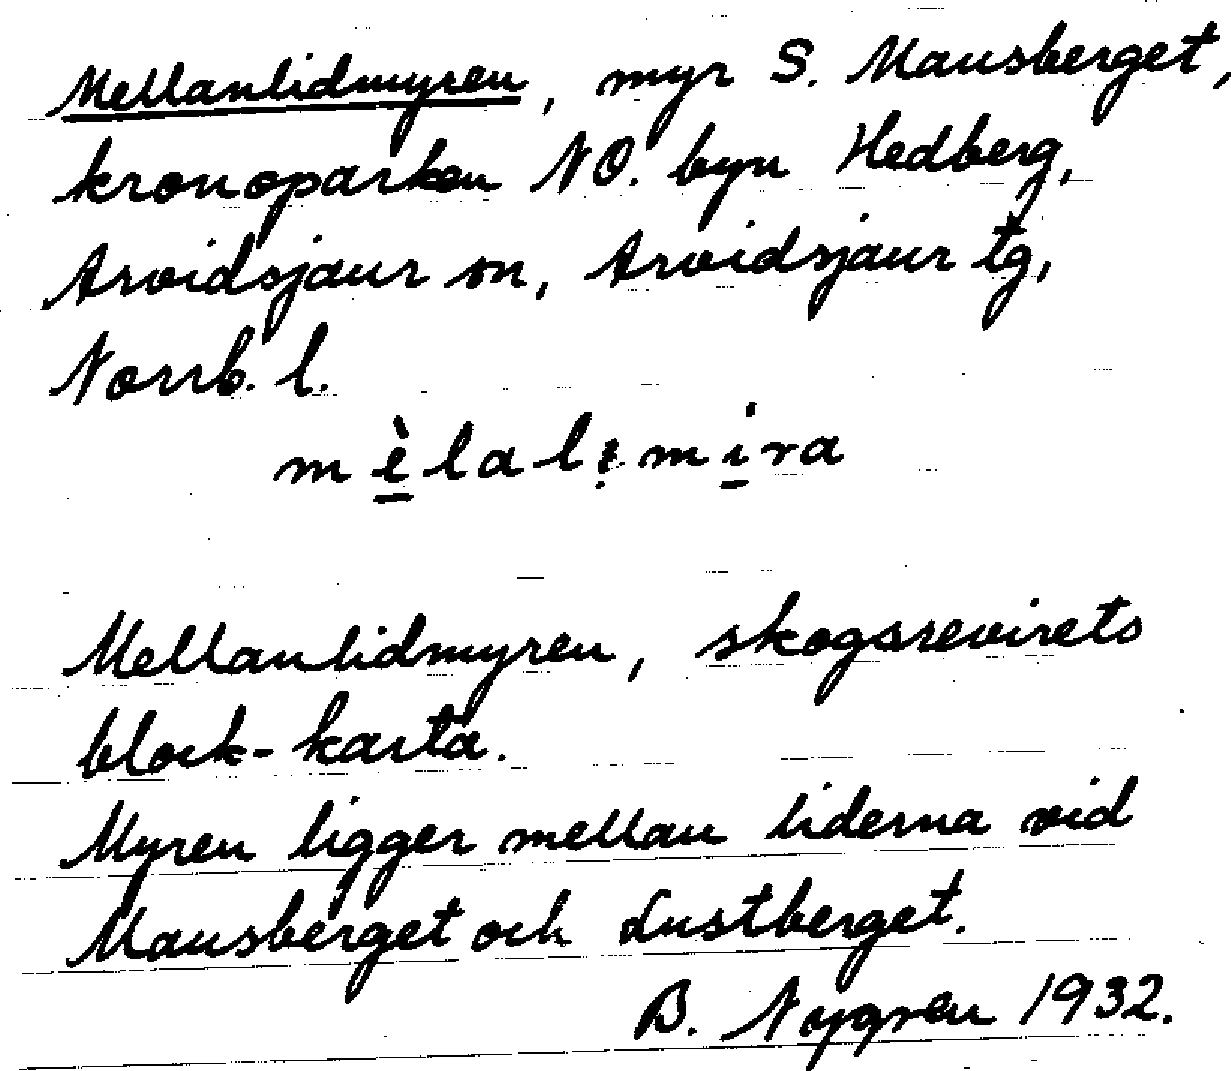 Mellanlidmyren, myr S. Mausberget,
kronoparken NO. byn Hedberg,
Arvidsjaur sn, Arvidsjaur tg,
Norrb. l.
Mellanlidmyren, skogsrevirets
block-karta.
Myren ligger mellan liderna vid
Mausberget och Lustberget.
B. Nygren 1932.